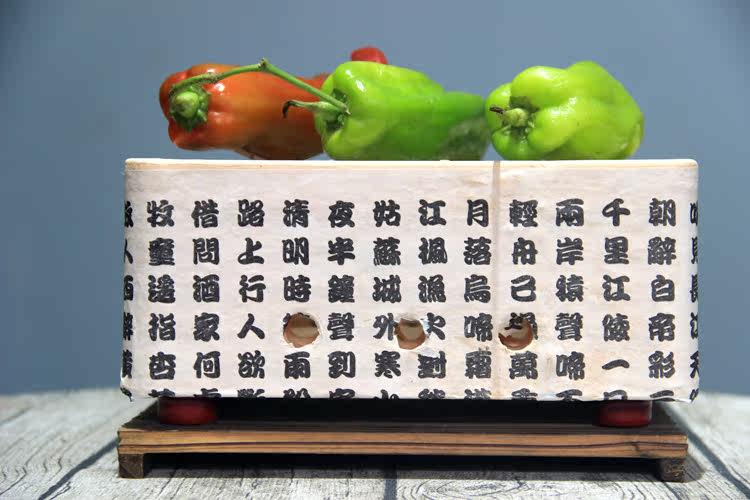 見長江天
朝辭白帝彩
千里江陵一
兩岸猿聲啼
輕舟已過萬
月落烏啼霜
江楓漁火對
姑蘇城外寒
夜半鐘聲到
清明時雨
路上行人欲
借問酒家何
牧童遙指杏
人西辭黃